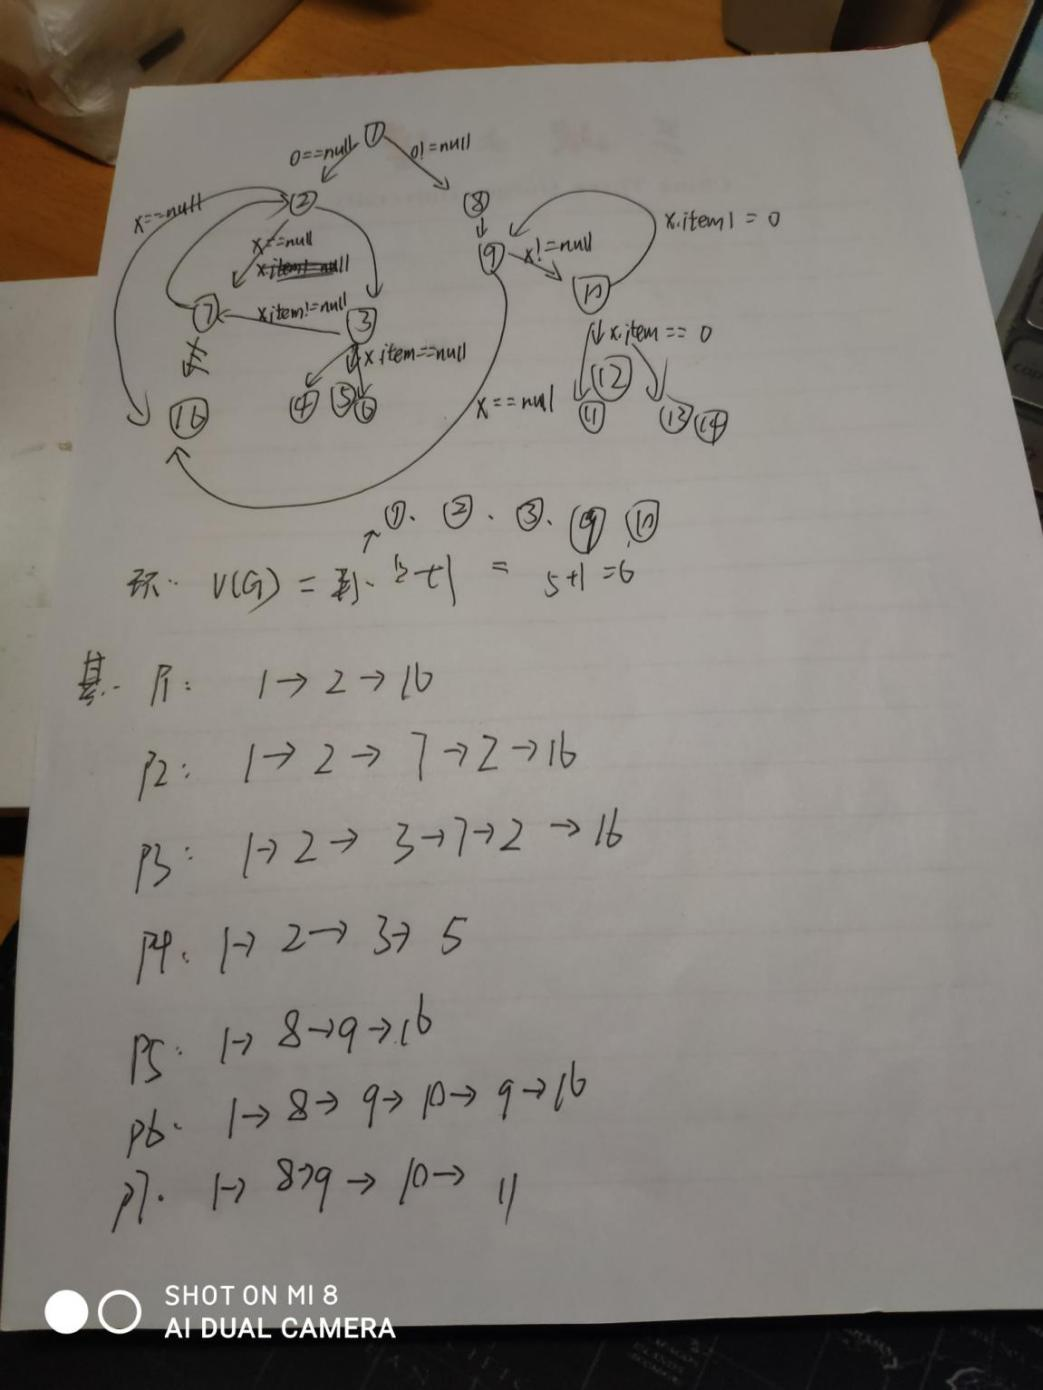 ①
o==null o!=null
②
⑧
x==null
x.item1=0
x==null
x!=null
⑨
⑩
x.item!=null
⑦
③
x.item==null
x.item==0
④ ⑤ ⑥
⑫
x==null
⑯
⑪
⑬ ⑭
①. ②. ③. ⑨ ⑩
环.. V(G) = +1 = 5+1=6
基.. P1: 1→2→16
P2: 1→2→7→2→16
P3: 1→2→3→7→2→16
P4. 1→2→3→5
P5. 1→8→9→16
P6. 1→8→9→10→9→16
P7. 1→8→9→10→11
SHOT ON MI 8
AI DUAL CAMERA